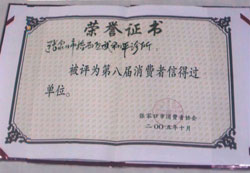 荣誉证书
被评为第八届消费者信得过
单位。
张家口市消费者协会
二00五年十月